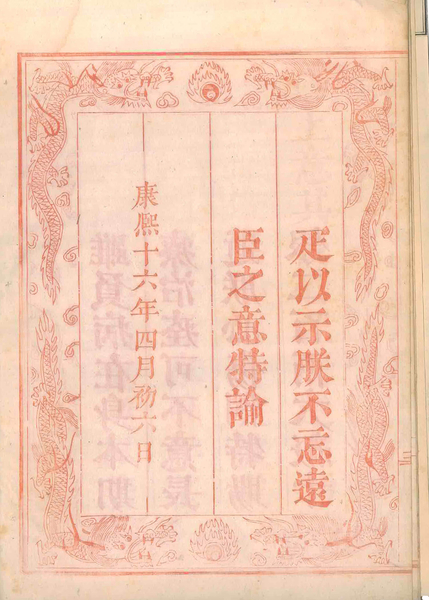 疋以示朕不忘遠
臣之意特諭
康熙十六年四月初六日